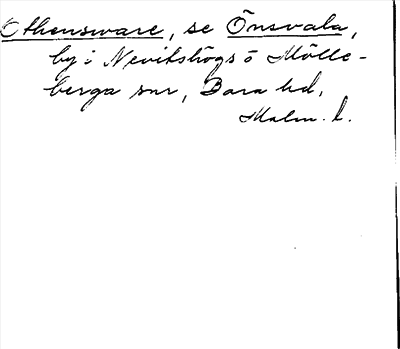 Othensware, se Önsvala,
by i Nevitshögs o Mölle-
berga snr, Bara hd,
Malm. l.